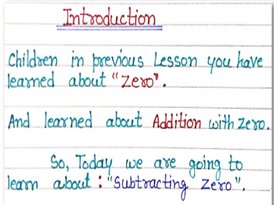 Introduction
Children in previous Lesson you have
learned about "Zero".
And learned about Addition with zero.
So, Today we are going to
learn about : "Subtracting Zero".